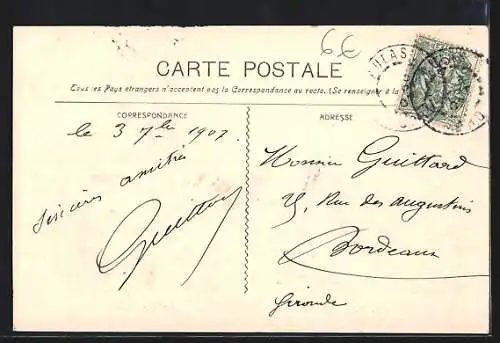 6€
CARTE POSTALE
Tous les Pays étrangers n'acceptent pas la Correspondance au recto. (Se renseigner à la
CORRESPONDANCE
ADRESSE
le 3 7bre 1907.
sincères amitiés
Guittard
Monsieur Guittard
Rue des augustins
Bordeaux
Gironde